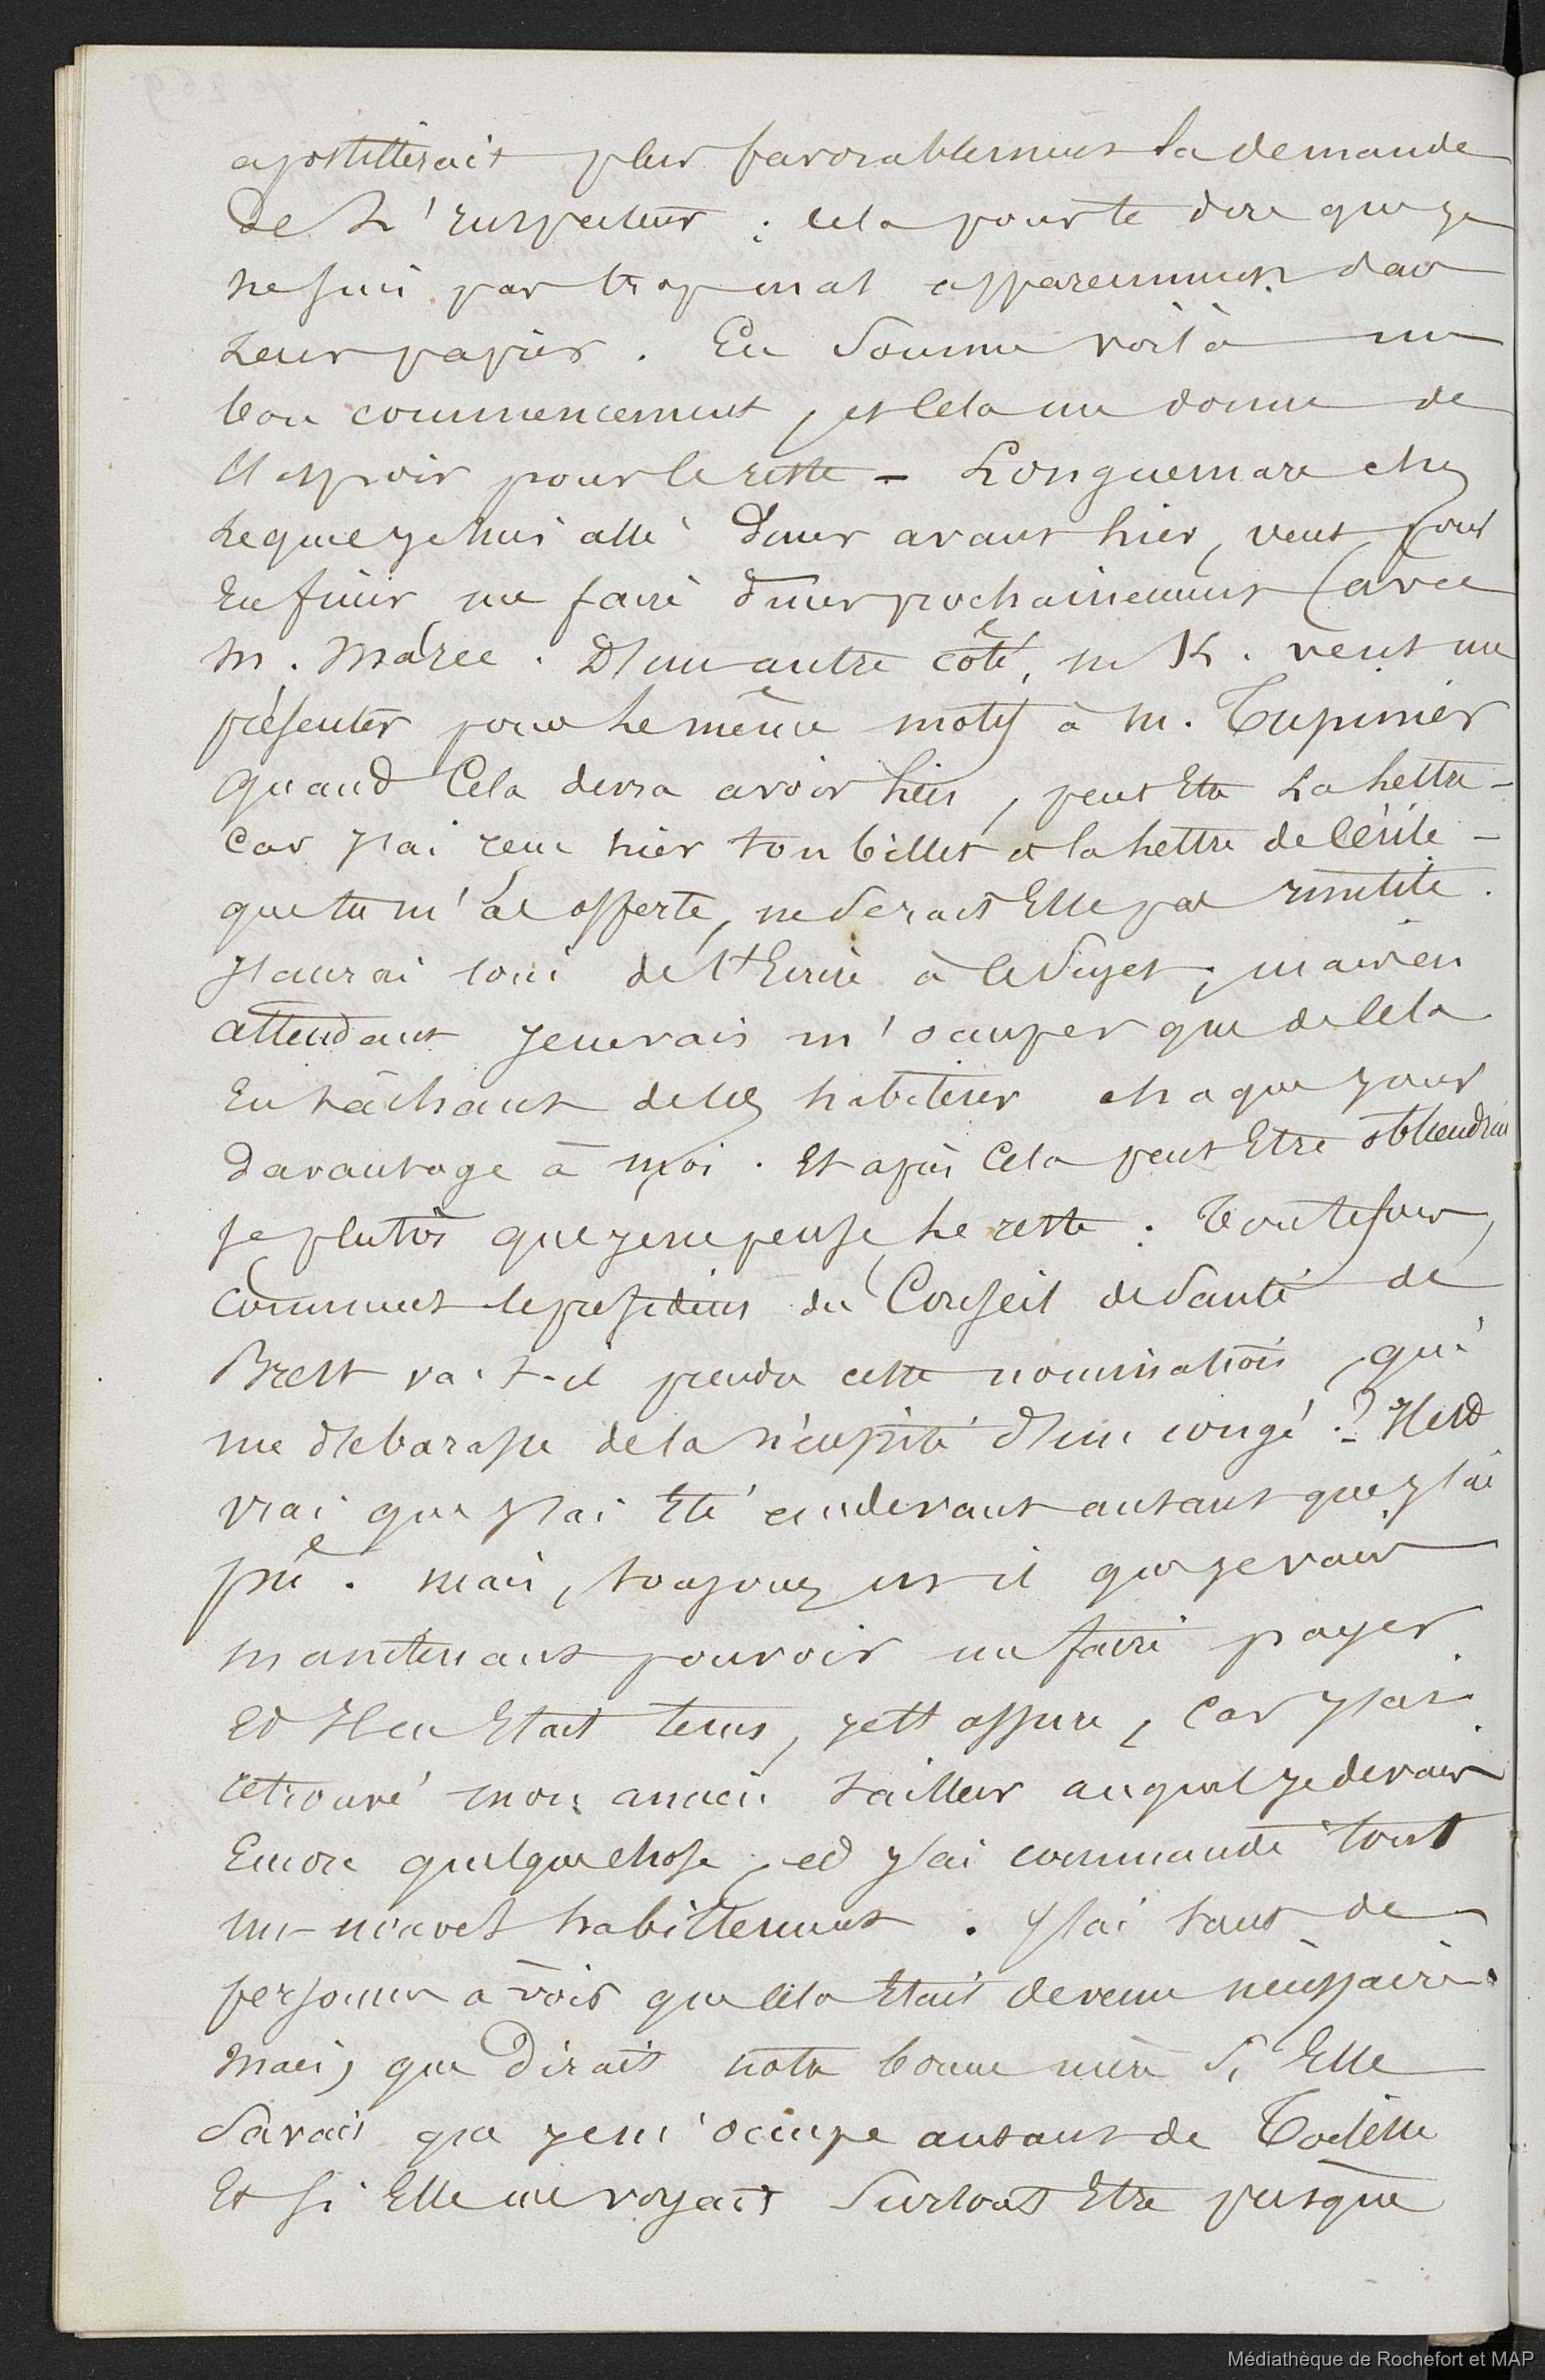 apostillerait plus favorablement la demande
de L'Inspecteur : cela pour te dire que je
ne suis pas trop mal apparemment dans
leurs papiers. En somme voilà un
bon commencement, et cela me donne de
l'espoir pour le reste – Longuemare chez
lequel je suis allé diner avant hier, veut pour
en finir me faire diner prochainement (avec
M. Marec. D'un autre côté, M K. veut me
présenter pour le même motif à M. Tupinier
quand Cela devra avoir lieu, peut être La lettre –
car j'ai reçu hier ton billet et la lettre de Cécile –
que tu m'as offerte, ne serait Elle pas inutile.
J'aurai soin de t'Ecrire à ce sujet ; mais en
attendant je ne vais m'occuper que de cela
En tâchant de les habituer chaque jour
davantage à moi. Et après Cela peut Etre obtiendrai
je plutôt que je ne pense le reste. Toutefois,
Comment le president du Conseil de Santé de
Brest va-t-il prendre cette nomination, qui
me débarasse de la nécessité d'un congé ? – Il est
vrai que j'ai Eté au devant autant que j'ai
pu. mais, toujours est il que je vais
maintenant pouvoir me faire payer
Et Il en Etait tems, je t'assure, Car j'ai
retrouvé mon ancien tailleur auquel je devais
Encore quelque chose, et j'ai commandé tout
un nouvel habillement. J'ai tant de
personnes à voir que cela Etait devenu nécessaire.
Mais, que Dirait notre bonne mère Si Elle
Savait que je m'occupe autant de Toilette
Et si Elle me voyait Surtout Etre presque
Médiathèque de Rochefort et MAP